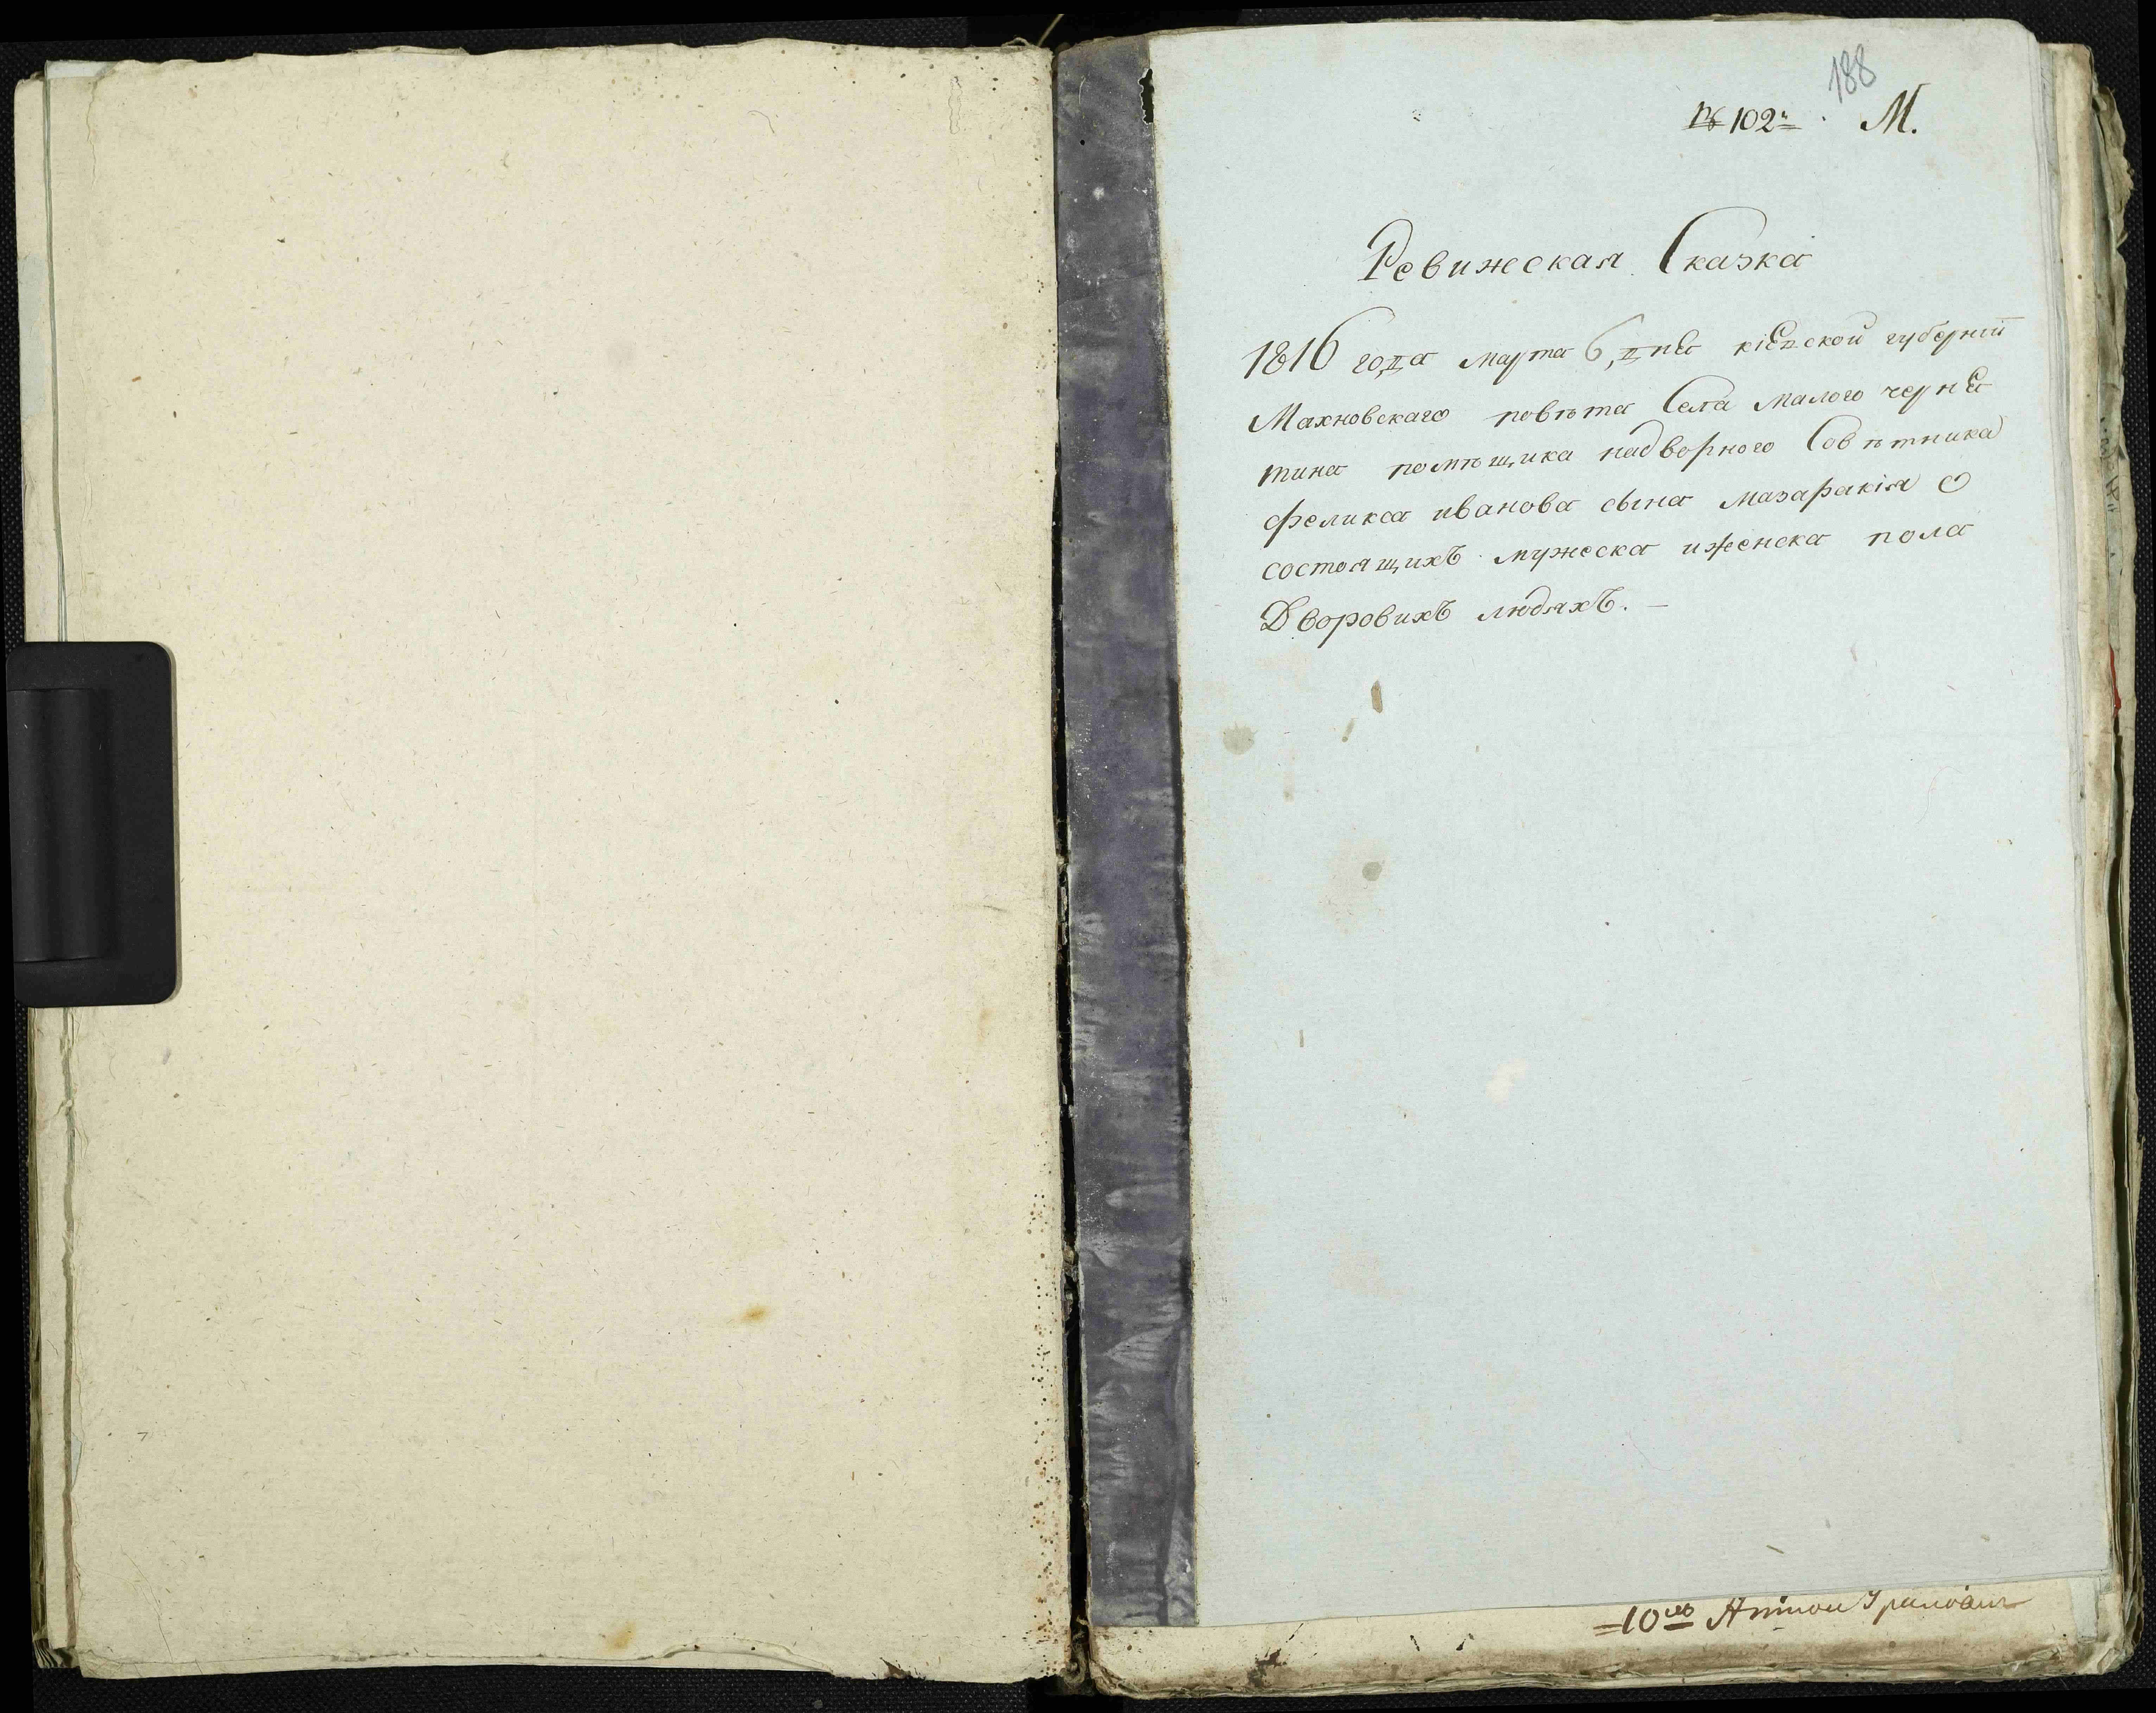 188
№ 102й. М.
Ревижская Сказка
1816 года марта 6, дня кіевской губерніи
Махновскаго повѣта Села малого черня
тина помѣщика надворного Совѣтника
феликса иванова сына мазаракія о
состоящихъ мужеска и женска пола
Дворовихъ людяхъ. —